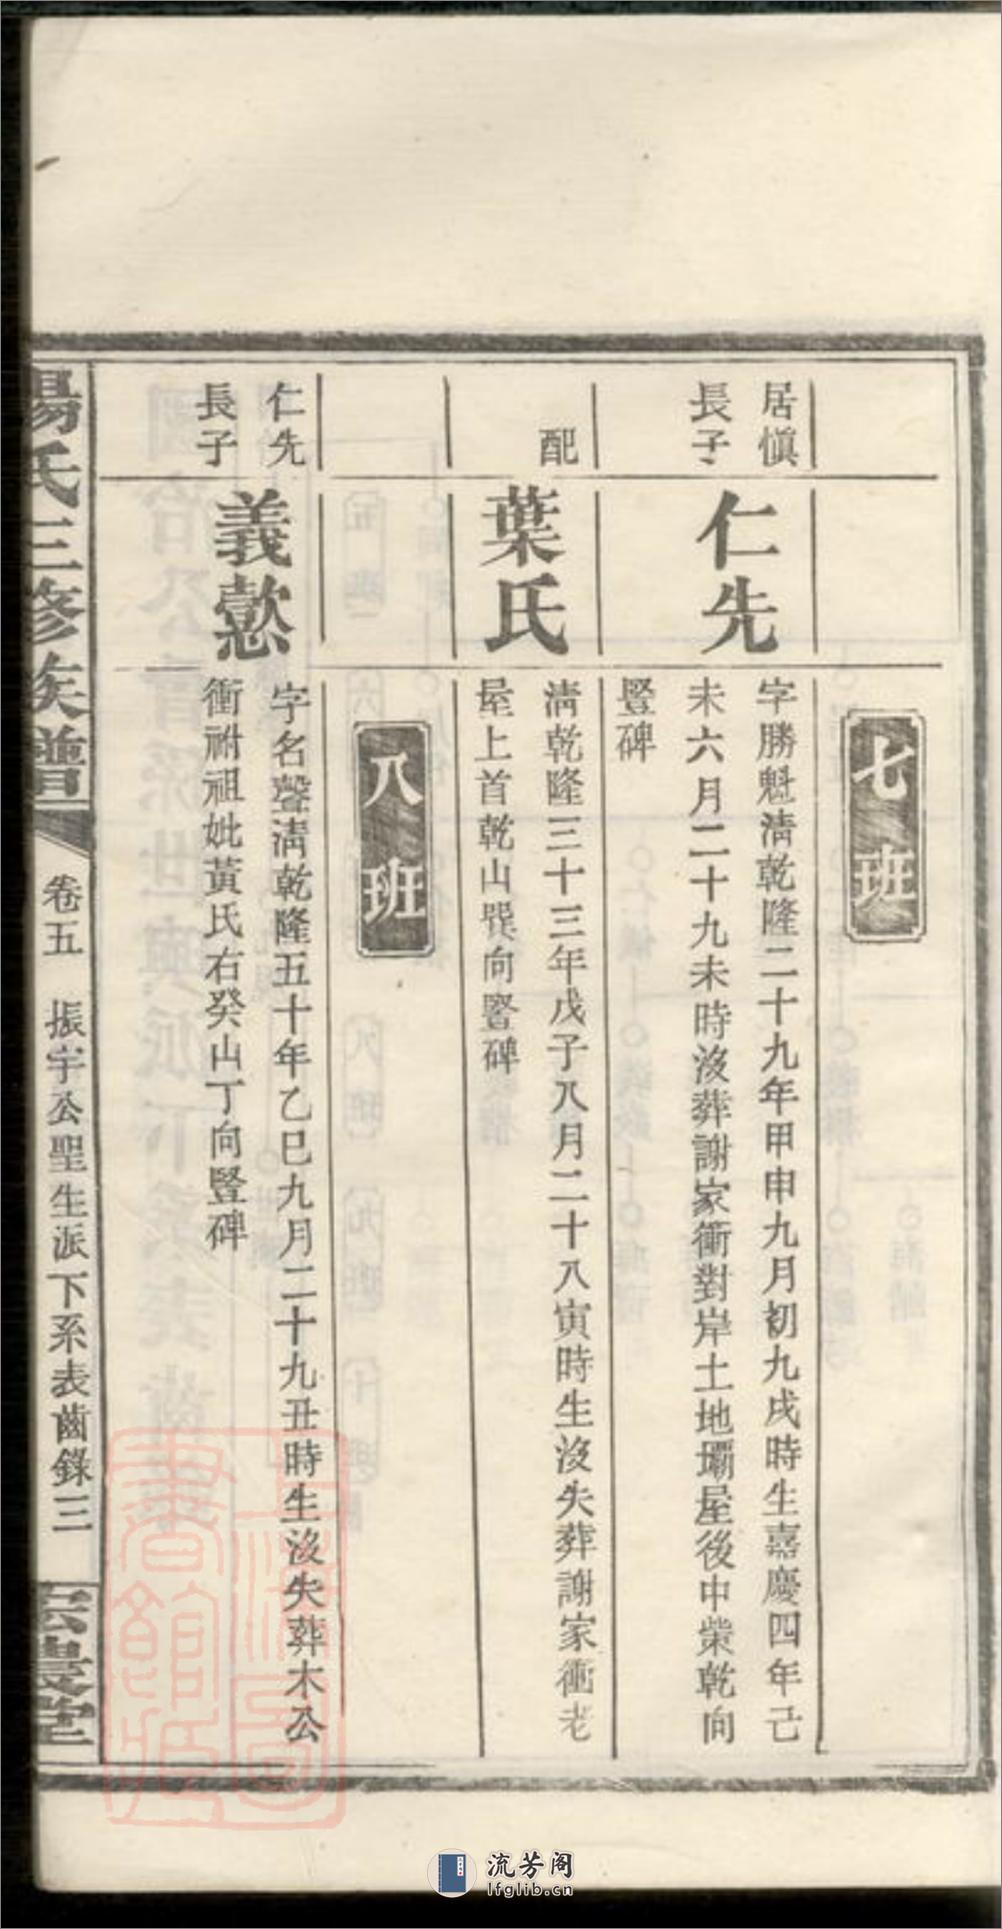 七班
居愼
長子
仁先
字勝魁淸乾隆二十九年甲申九月初九戌時生嘉慶四年己
未六月二十九未時沒葬謝家衝對岸土地壩屋後中柴乾向
豎碑
配
葉氏
淸乾隆三十三年戊子八月二十八寅時生沒失葬謝家衝老
屋上首乾山巽向豎碑
八班
仁先
長子
義懲
字名聲淸乾隆五十年乙巳九月二十九丑時生沒失葬木公
衝祔祖妣黃氏右癸山丁向豎碑
楊氏三修族譜
卷五
振宇公聖生派下系表齒錄三
堂
流芳阁
lfglib.cn